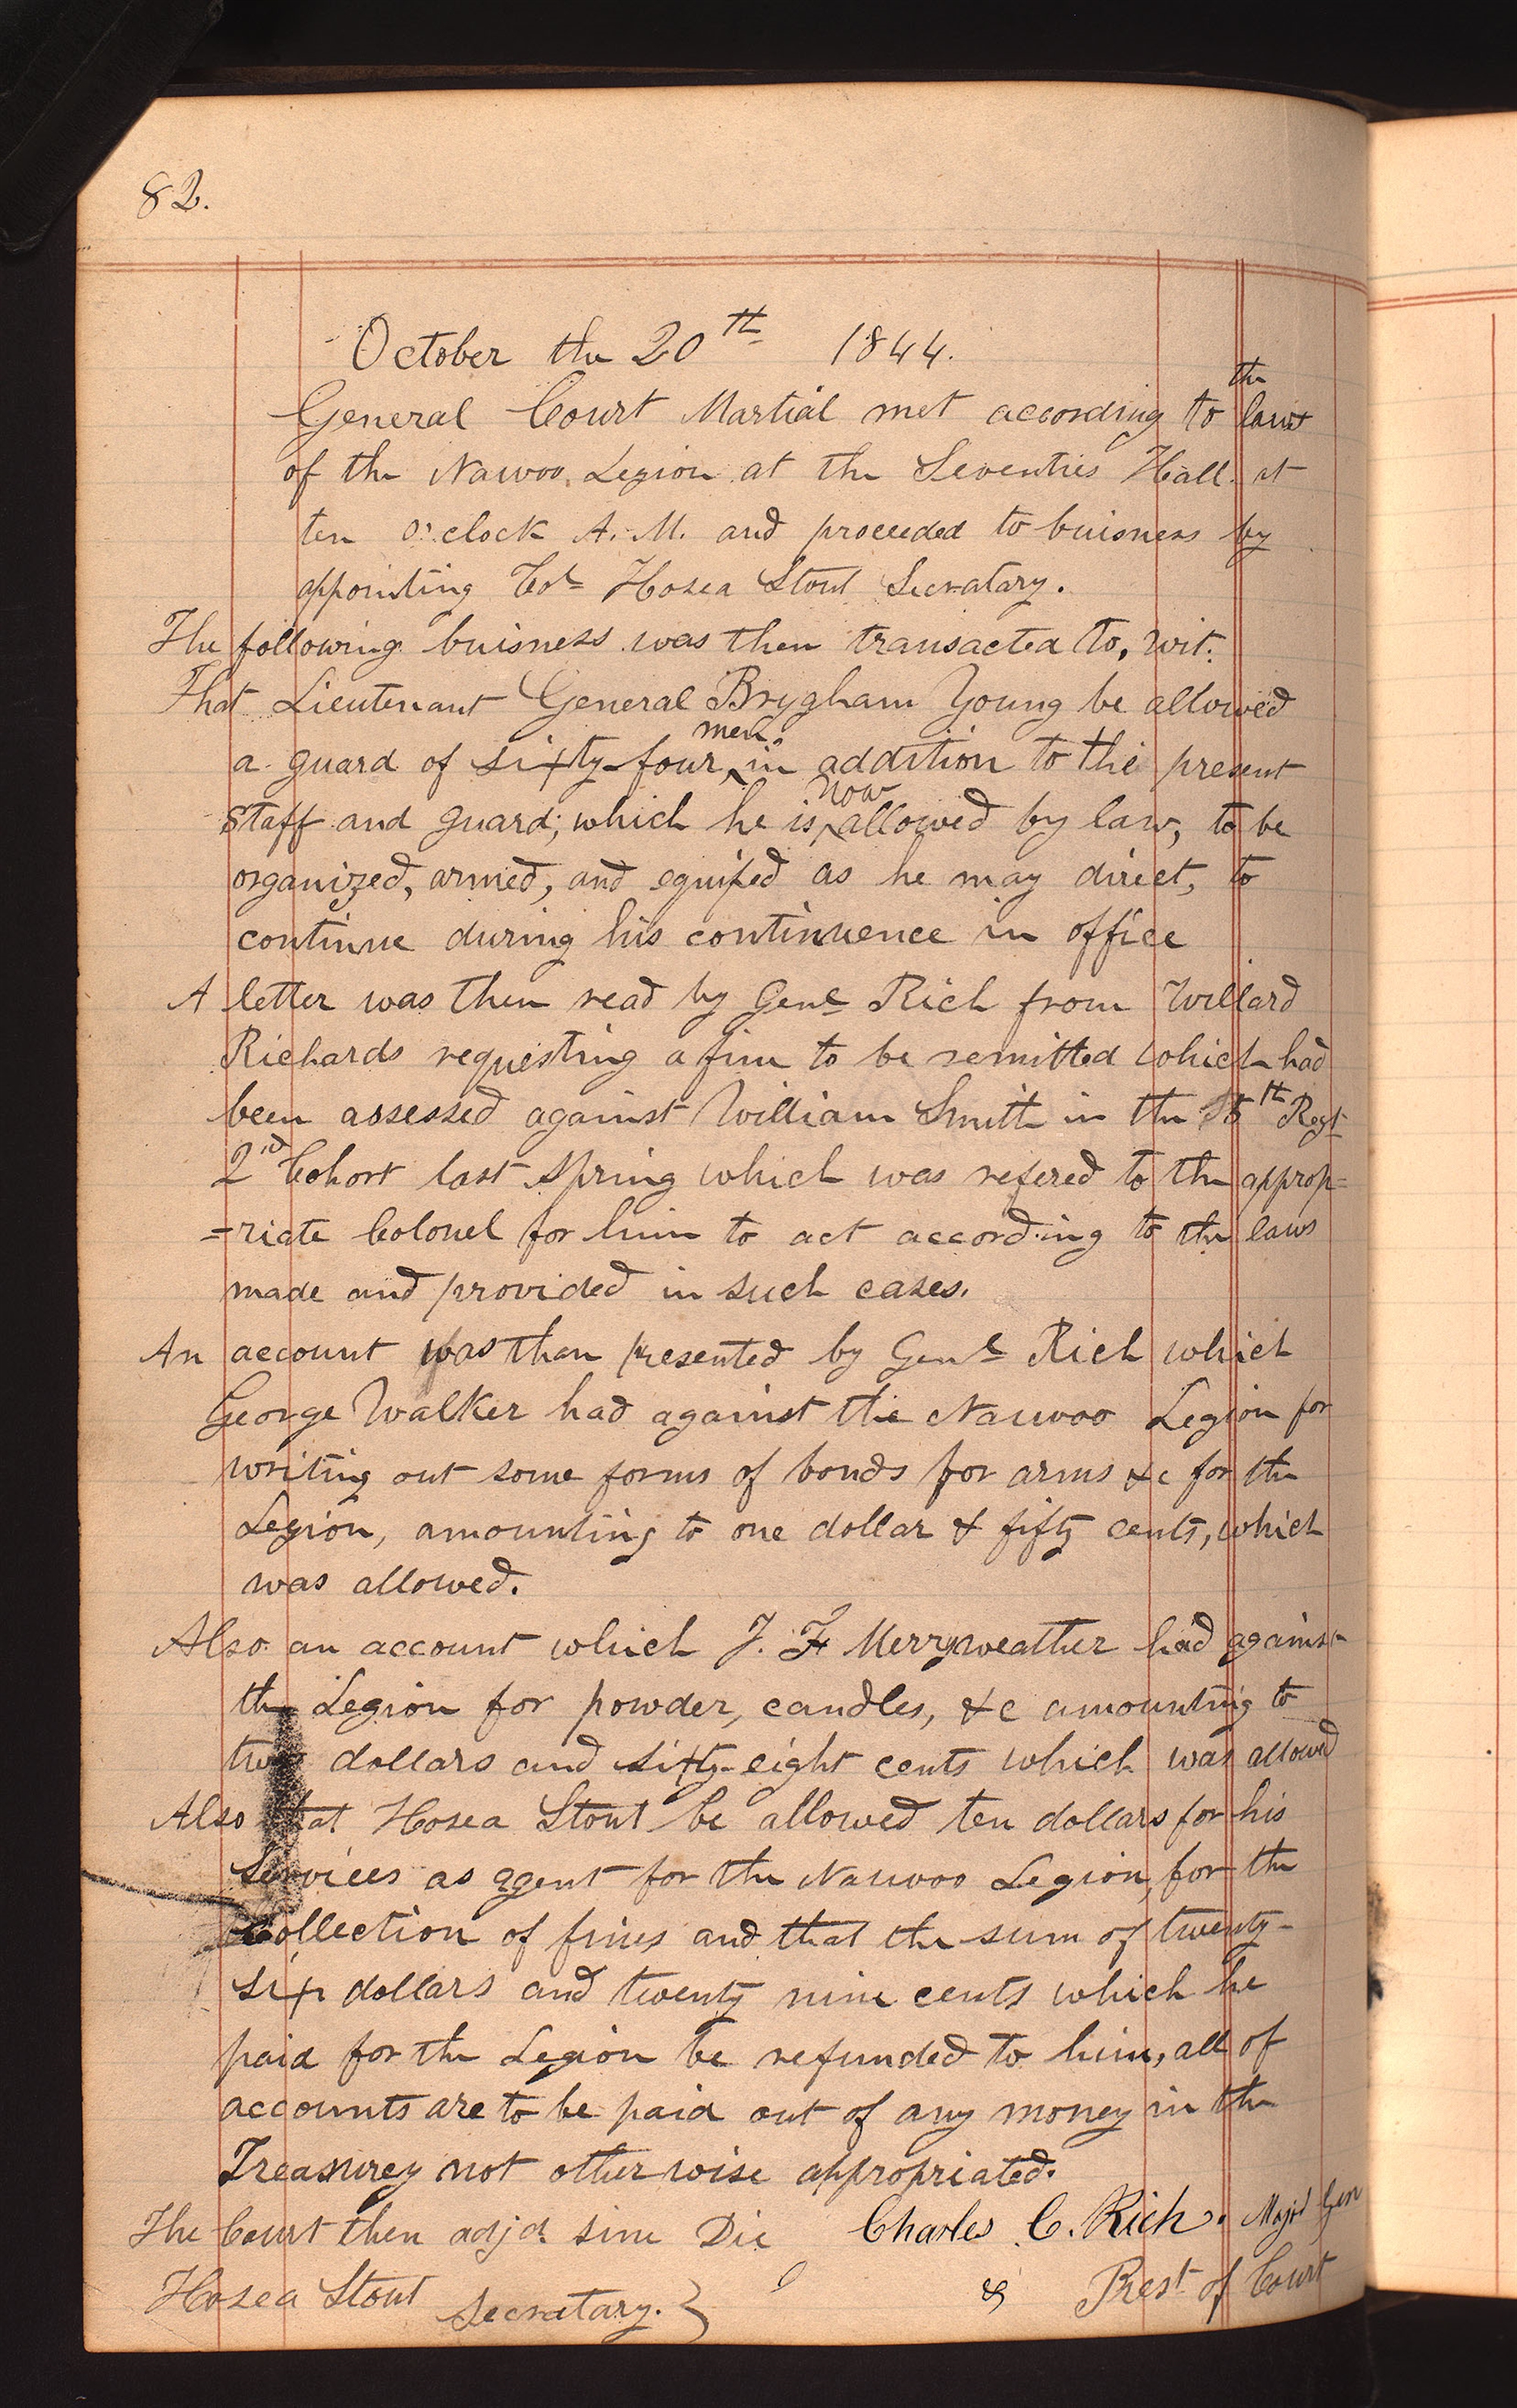 82.
October the 20th 1844.
General Court Martial met according to the laws
of the Nauvoo Legion at the Seventies Hall. at
ten o'clock A.M. and proceeded to buisness by
appointing Col Hosea Stout Secratary.
The following buisness was then transacted to, wit:
That Lieutenant General Brygham Young be allowed
a guard of sixty-four men in addition to the present
staff and guard; which he is now allowed by law, to be
organized, armed, and equiped as he may direct, to
continue during his continuence in office
A letter was then read by Genl Rich from Willard
Richards requesting a fine to be remitted which had
been assessed against William Smith in the 5th Regt
2nd Cohort last spring which was refered to the approp=
=riate Colonel for him to act according to the laws
made and provided in such cases.
An account was than presented by Genl Rich which
George Walker had against the Nauvoo Legion for
writing out some forms of bonds for arms &c for the
Legion, amounting to one dollar & fifty cents, which
was allowed.
Also an account which J. F Merryweather had against
the Legion for powder, candles, &c amounting to
two dollars and sixty-eight cents which was allowed
Also that Hosea Stout be allowed ten dollars for his
services as agent for the Nauvoo Legion, for the
collection of fines and that the sum of twenty-
six dollars and twenty nine cents which he
paid for the Legion be refunded to him, all of
accounts are to be paid out of any money in the
Treasurey not otherwise appropriated.
The Court then adjd. sine Die Charles C. Rich. Majr Gen
Hosea Stout Secratary. } & Prest of Court